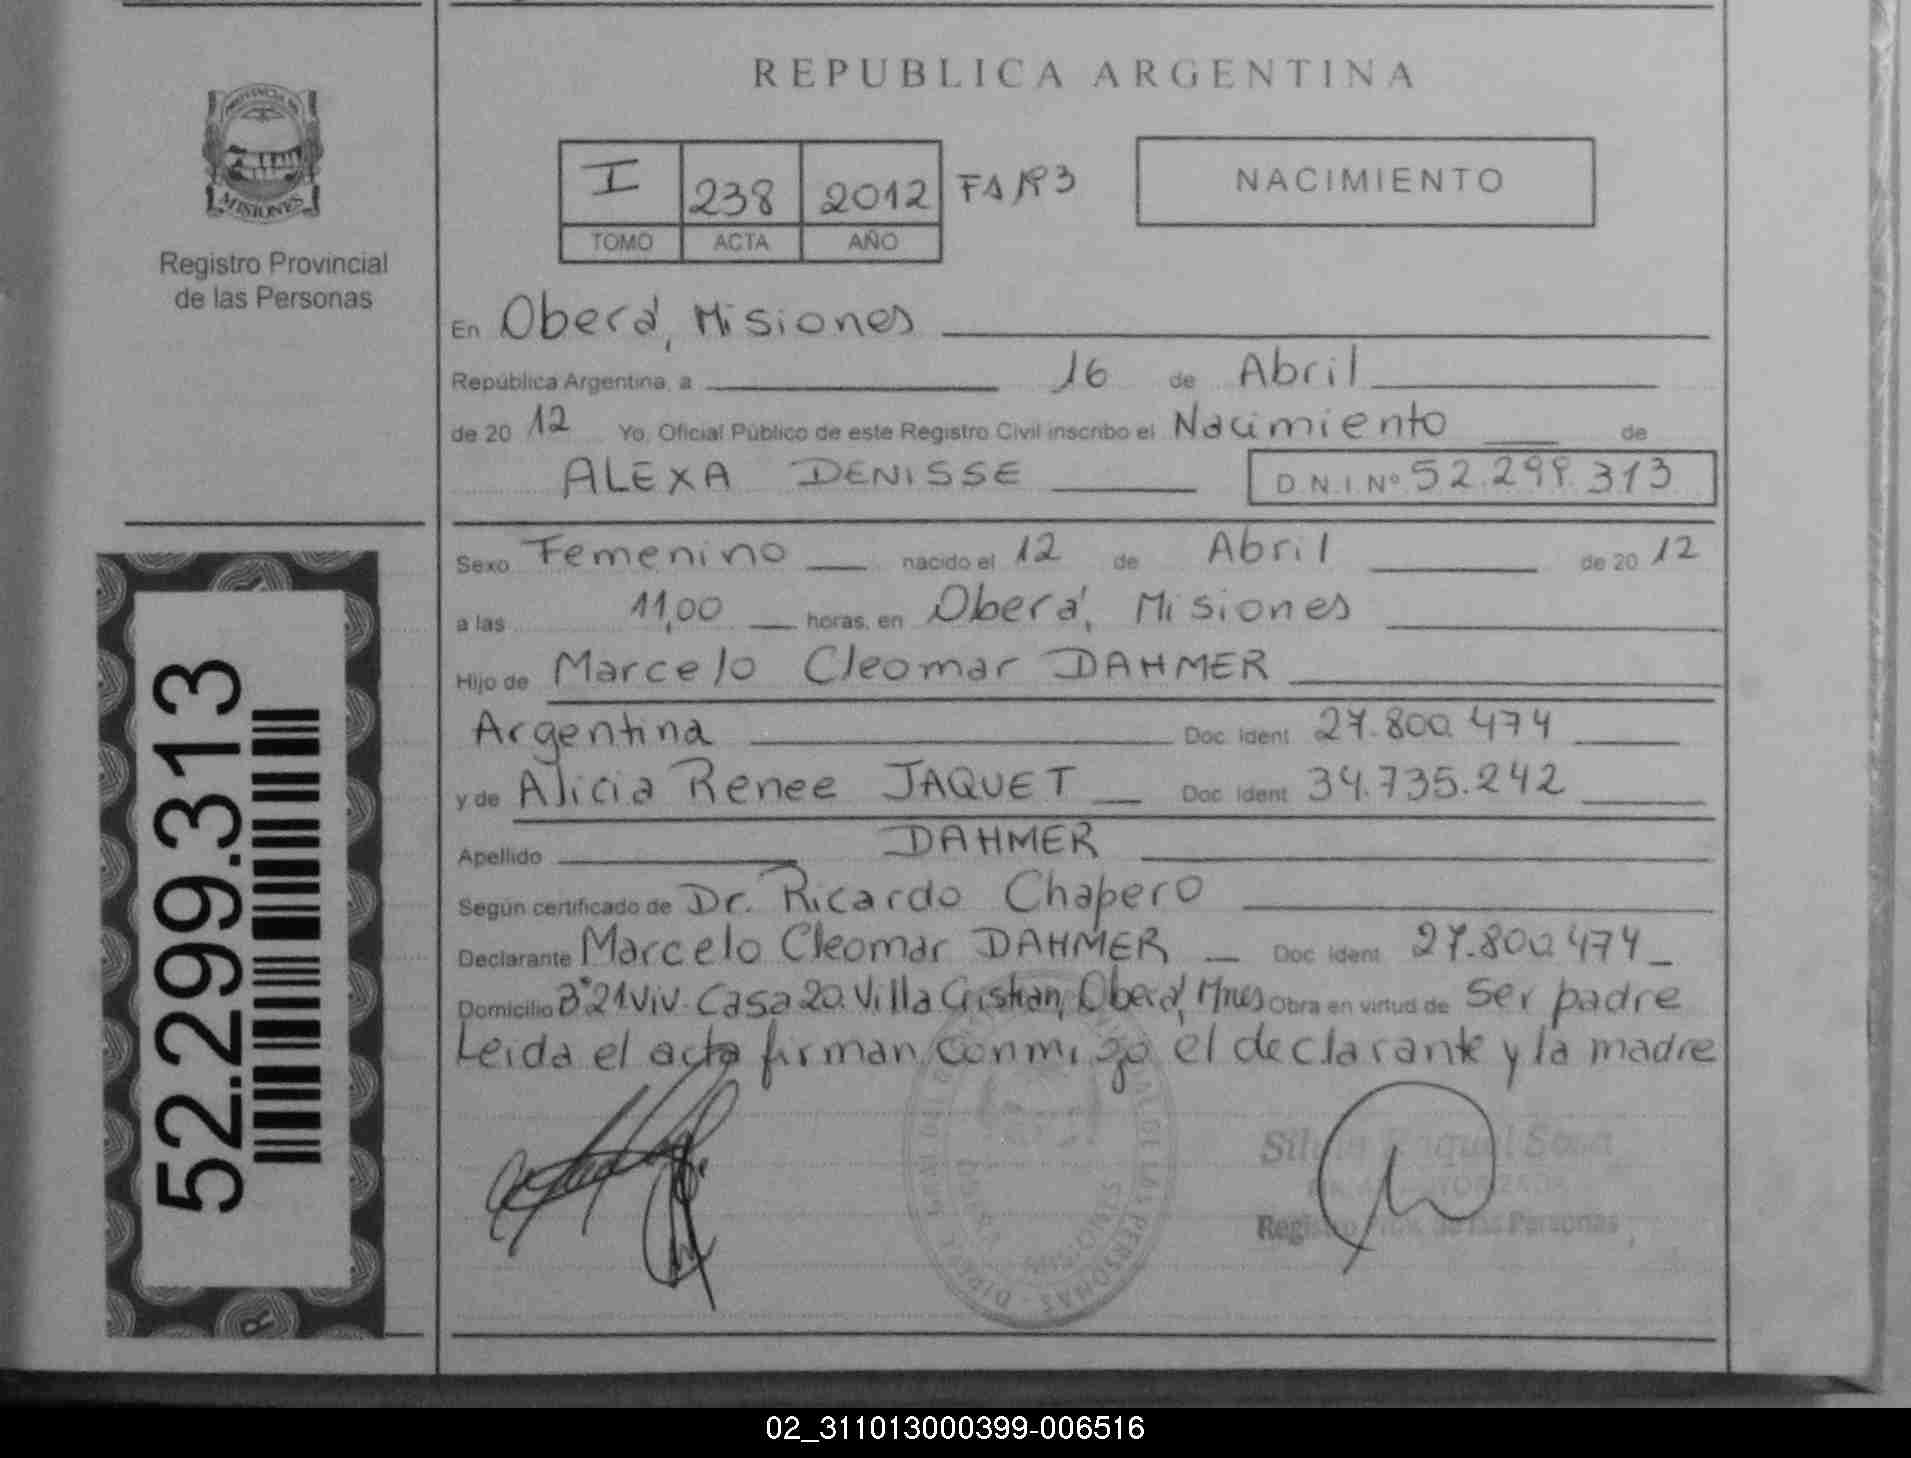 REPUBLICA ARGENTINA
PROVINCIA DE
MISIONES
Registro Provincial
de las Personas
I 238 2012
TOMO ACTA AÑO
NACIMIENTO
En Oberá, Misiones
República Argentina, a 16 de Abril
de 20 12 Yo, Oficial Público de este Registro Civil inscribo el Nacimiento de
ALEXA DENISSE D.N.I. Nº 52.299.313
Sexo Femenino nacido el 12 de Abril de 20 12
a las 11,00 horas, en Oberá, Misiones
Hijo de Marcelo Cleomar DAHMER
Argentina Doc. Ident. 27.800.474
y de Alicia Renee JAQUET Doc. Ident. 34.735.242
Apellido DAHMER
Según certificado de Dr. Ricardo Chapero
Declarante Marcelo Cleomar DAHMER Doc. Ident. 27.800.474
Domicilio Bº 21 Viv. Casa 20. Villa Cristian, Oberá, Mnes Obra en virtud de ser padre
Leida el acta firman conmigo el declarante y la madre
Raquel Sosa
Registro de las Personas
52.299.313
02_311013000399-006516